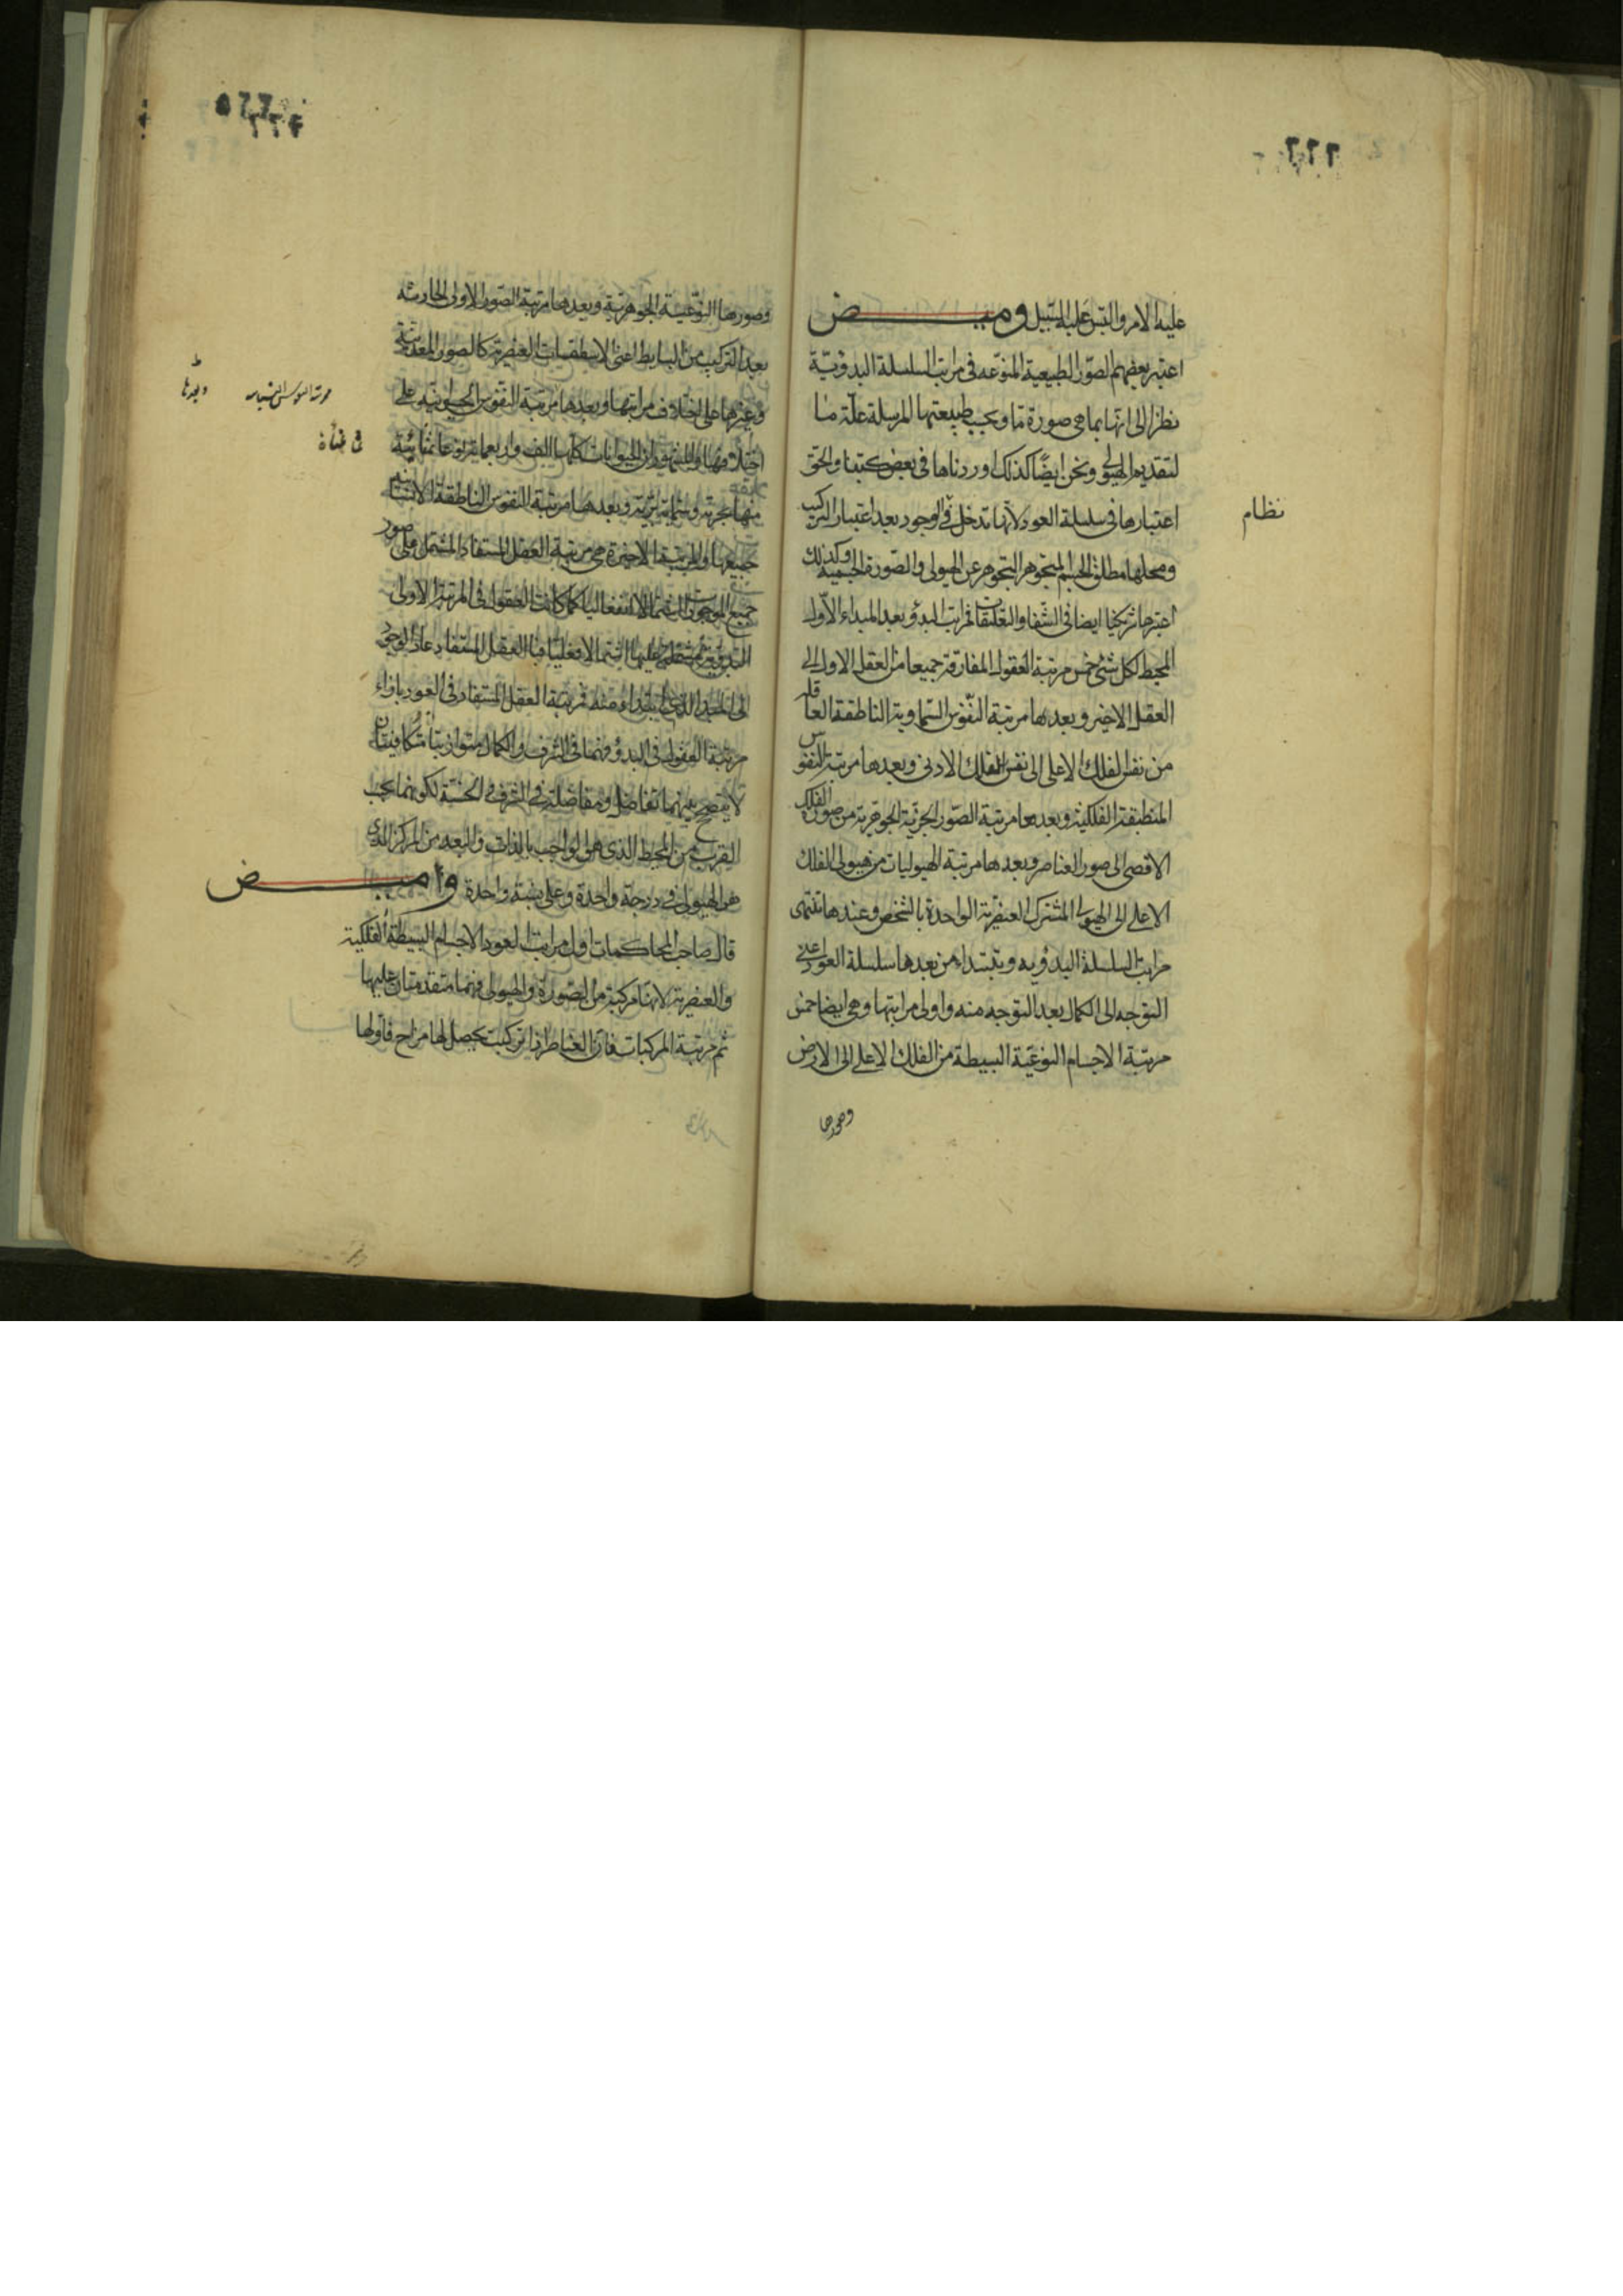 عليه الامر والتبس عليه السبيل ومیض
اعتبر بعضهم الصور الطبيعية المنوعه في مراتب السلسلة البدوئية
نظرا الى انها بما هي صورة ما وبحسب طبيعتها المرسلة علة ما
لتقديم الهيولى ونحن ايضا كذلك اوردناها في بعض كتبنا والحق
اعتبارها في سلسلة العود لانها تدخل في الوجود بعد اعتبار التركيب
ومحلها مطلق الجسم المتجوهر التجوهر عن الهيولى والصورة الجسمية وكذلك
اعتبرها شريكنا ايضا في الشفا والتعليقات فمراتب البدؤ بعد المبداء الاول
المحيط لكل شئ خمس مرتبة العقول المفارقة جميعا من العقل الاول الى
العقل الاخير وبعدها مرتبة النفوس السماوية الناطقة العاقلة
من نفس الفلك الاعلى الى نفس الفلك الادنى وبعدها مرتبة النفوس
المنطبقة الفلكية وبعدها مرتبة الصور الجزئية الجوهرية من صور الفلك
الاقصى الى صور العناصر وبعدها مرتبة الهيوليات من هيولى الفلك
الاعلى الى الهيولى المشترك العنصرية الواحدة بالشخص وعندها تنتهى
مراتب السلسلة البدؤيه ويبتداء من بعدها سلسلة العود اعنى
التوجه الى الكمال بعد التوجه منه واولى مراتبها وهي ايضا خمس
مرتبة الاجسام النوعية البسيطة من الفلك الاعلى الى الارض
وصورها
نظام
وصورها النوعية الجوهرية وبعدها مرتبة الصور الاولى الحادثه
بعد التركيب من البسايط اعنى الاسطقسات العنصرية كالصور المعدنية
وغيرها على اختلاف مراتبها وبعدها مرتبة النفوس الحيوانية على
اختلافها والمشهور ان الحيوانات كلها الف واربعمائة نوعا ثمانمائة
منها بحرية وستمائة برية وبعدها مرتبة النفوس الناطقة الانسانية
جميعها والمرتبة الاخيرة هي مرتبة العقل المستفاد المشتمل على صور
جميع الموجودات اشتمالا انفعاليا كما كانت العقول في المرتبة الاولى
البدوئية مشتملة عليها اشتمالا فعليا فبا العقل المستفاد عاد الوجود
الى المبدا الذي ابتداء منه فمرتبة العقل المستفاد في العود بازاء
مرتبة العقول في البدؤ وهما في الشرف والكمال متوازيتا متكافيتان
لا يتصحح بينهما تفاضل ومفاضلة في الشرف والخسة لكونهما بحسب
القرب من المحيط الذي هو الواجب بالذات والبعد من المركز الذي
هو الهيولى في درجة واحدة وعلى نسبة واحدة وامیض
قال صاحب المحاكمات اول مراتب العود الاجسام البسيطة الفلكية
والعنصرية لانها مركبة من الصورة والهيولى وهما متقدمتان عليها
ثم مرتبة المركبات فان العناصر اذا تركبت يحصل لها مزاج فاولها